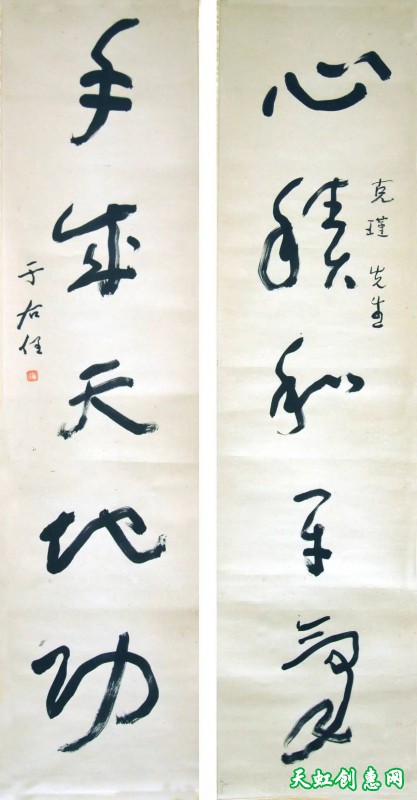 心积和平氣
克瑾先生
手成天地功
于右任
天虹创惠网